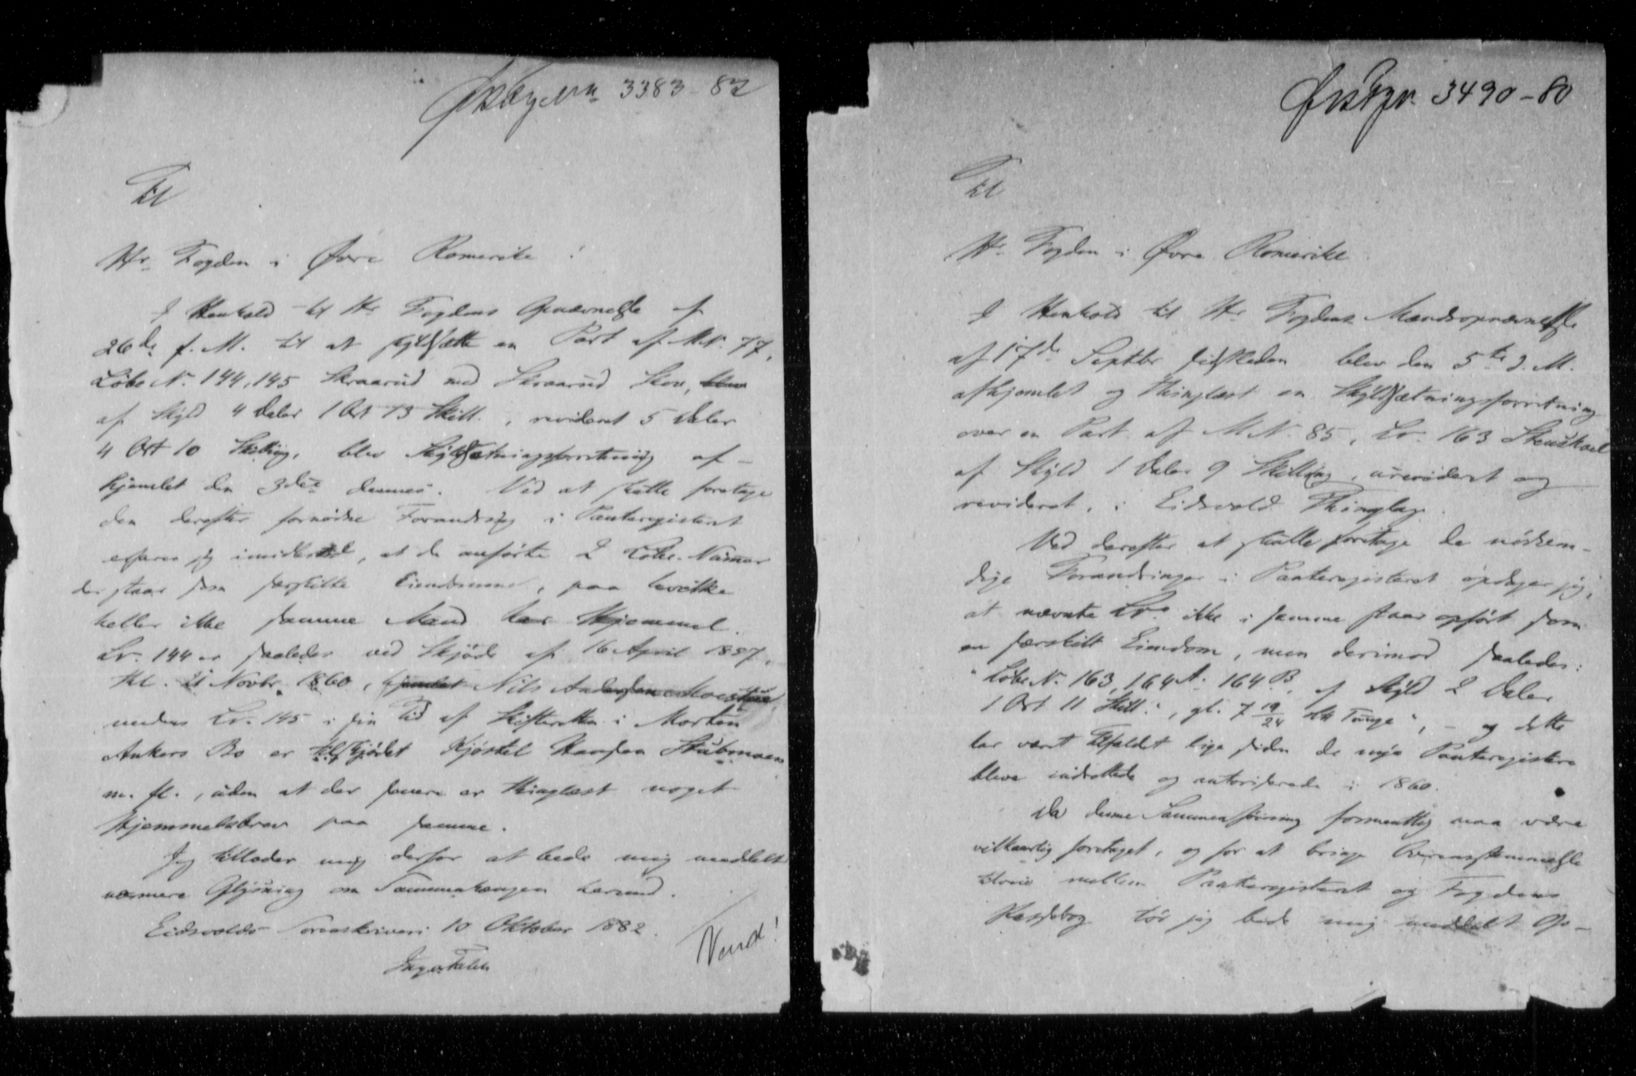 3383-82
Til
Hr. Fogden i Øvre Romerike!
I Henhold til Hr Fogdens Opnævnelse af
26de f. M. til at skyldsætte en Part af M.N. 77,
Løbe N. 144, 145 Skraarud med Skraarud Skov,
af Skyld 4 Daler 1 Ort 13 Skill., revideret 5 Daler
4 Ort 10 Skilling, blev Skyldsætningsforretning af-
hjemlet den 3die dennes. Ved at skulle foretage
den derefter fornødne Forandring i Panteregisteret
erfarer jg imidlertid, at de anførte 2 Løbe-Numer
der staar som særskilte Eiendomme, paa hvilke
heller ikke samme Mand har Hjemmel.
Lv. 144 er saaledes ved Skjøde af 16 April 1857,
thl. 21 Novbr. 1860, hjemlet Nils Andersen
medens Lv. 145 i sin Tid af Skifteretten i Morten
Ankers Bo er tilskjødet Kjøstel Hansen Stubmoen
m. fl., uden at der senere er thinglæst noget
Hjemmelsbrev paa samme.
Jeg tillader mig derfor at bede mig meddelt
nærmere Oplysning om Sammenhængen herved.
Eidsvolds Sorenskriveri 10 Oktober 1882.
Vend!
3490-80
Til
Hr. Fogden i Øvre Romerike
I Henhold til Hr. Fogdens Mandsopnævnelse
af 17de Septbr sidstleden blev den 5te d. M.
afhjemlet og thinglæst en Skyldsætningsforretning
over en Part af M.N. 85, Lv. 163
af Skyld 1 Daler 9 Skilling, urevideret og
revideret, i Eidsvold Thinglag.
Ved derefter at skulle foretage de nødven-
dige Forandringer i Panteregisteret opdager jeg,
at nævnte Lv. ikke i samme staar opført som
en særskilt Eiendom, men derimod saaledes:
"Løbe N. 163, 164 A. 164 B. af Skyld 2 Daler
1 Ort 11 Skill.", gl. 7 19/24 Tunge", - og dette
har været Tilfældet lige siden de nye Panteregistere
bleve indrettede og autoriserede i 1860.
Da denne Sammenføining formentlig maa være
vilkaarlig foretaget, og for at bringe Overensstemmelse
tilveie mellem Panteregisteret og Fogdens
tør jeg bede mig meddelt Op-